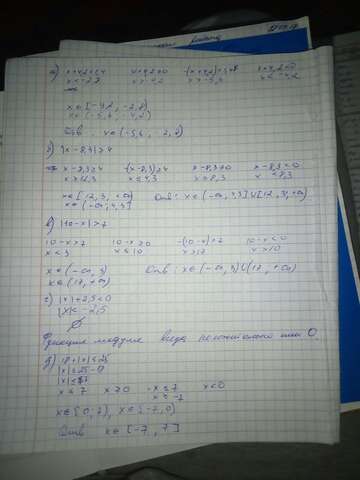 а) x+4,2<1,4 x+4,2≥0 -(x+4,2)<1,4 x+4,2<0
x<-2,8 x≥-4,2 x>-5,6 x<-4,2
x∈[-4,2, -2,8)
x∈(-5,6, -4,2)
Отв: x∈(-5,6, -2,8)
б) |x-8,3|≥4
x-8,3≥4 -(x-8,3)≥4 x-8,3≥0 x-8,3<0
x≥12,3 x≤4,3 x≥8,3 x<8,3
x∈[12,3, +∞)
x∈(-∞, 4,3] Отв: x∈(-∞, 4,3]∪[12,3, +∞)
в) |10-x|>7
10-x>7 10-x≥0 -(10-x)>7 10-x<0
x<3 x≤10 x>17 x>10
x∈(-∞, 3) Отв: x∈(-∞, 3)∪(17, +∞)
x∈(17, +∞)
г) |x|+2,5<0
|x|<-2,5
∅
Функция модуля всегда положительна или 0.
д) 18+|x|≤25
|x|≤25-18
|x|≤7
x≤7 x≥0 -x≤7 x<0
x≥-7
x∈[0, 7], x∈[-7, 0)
Отв x∈[-7, 7]